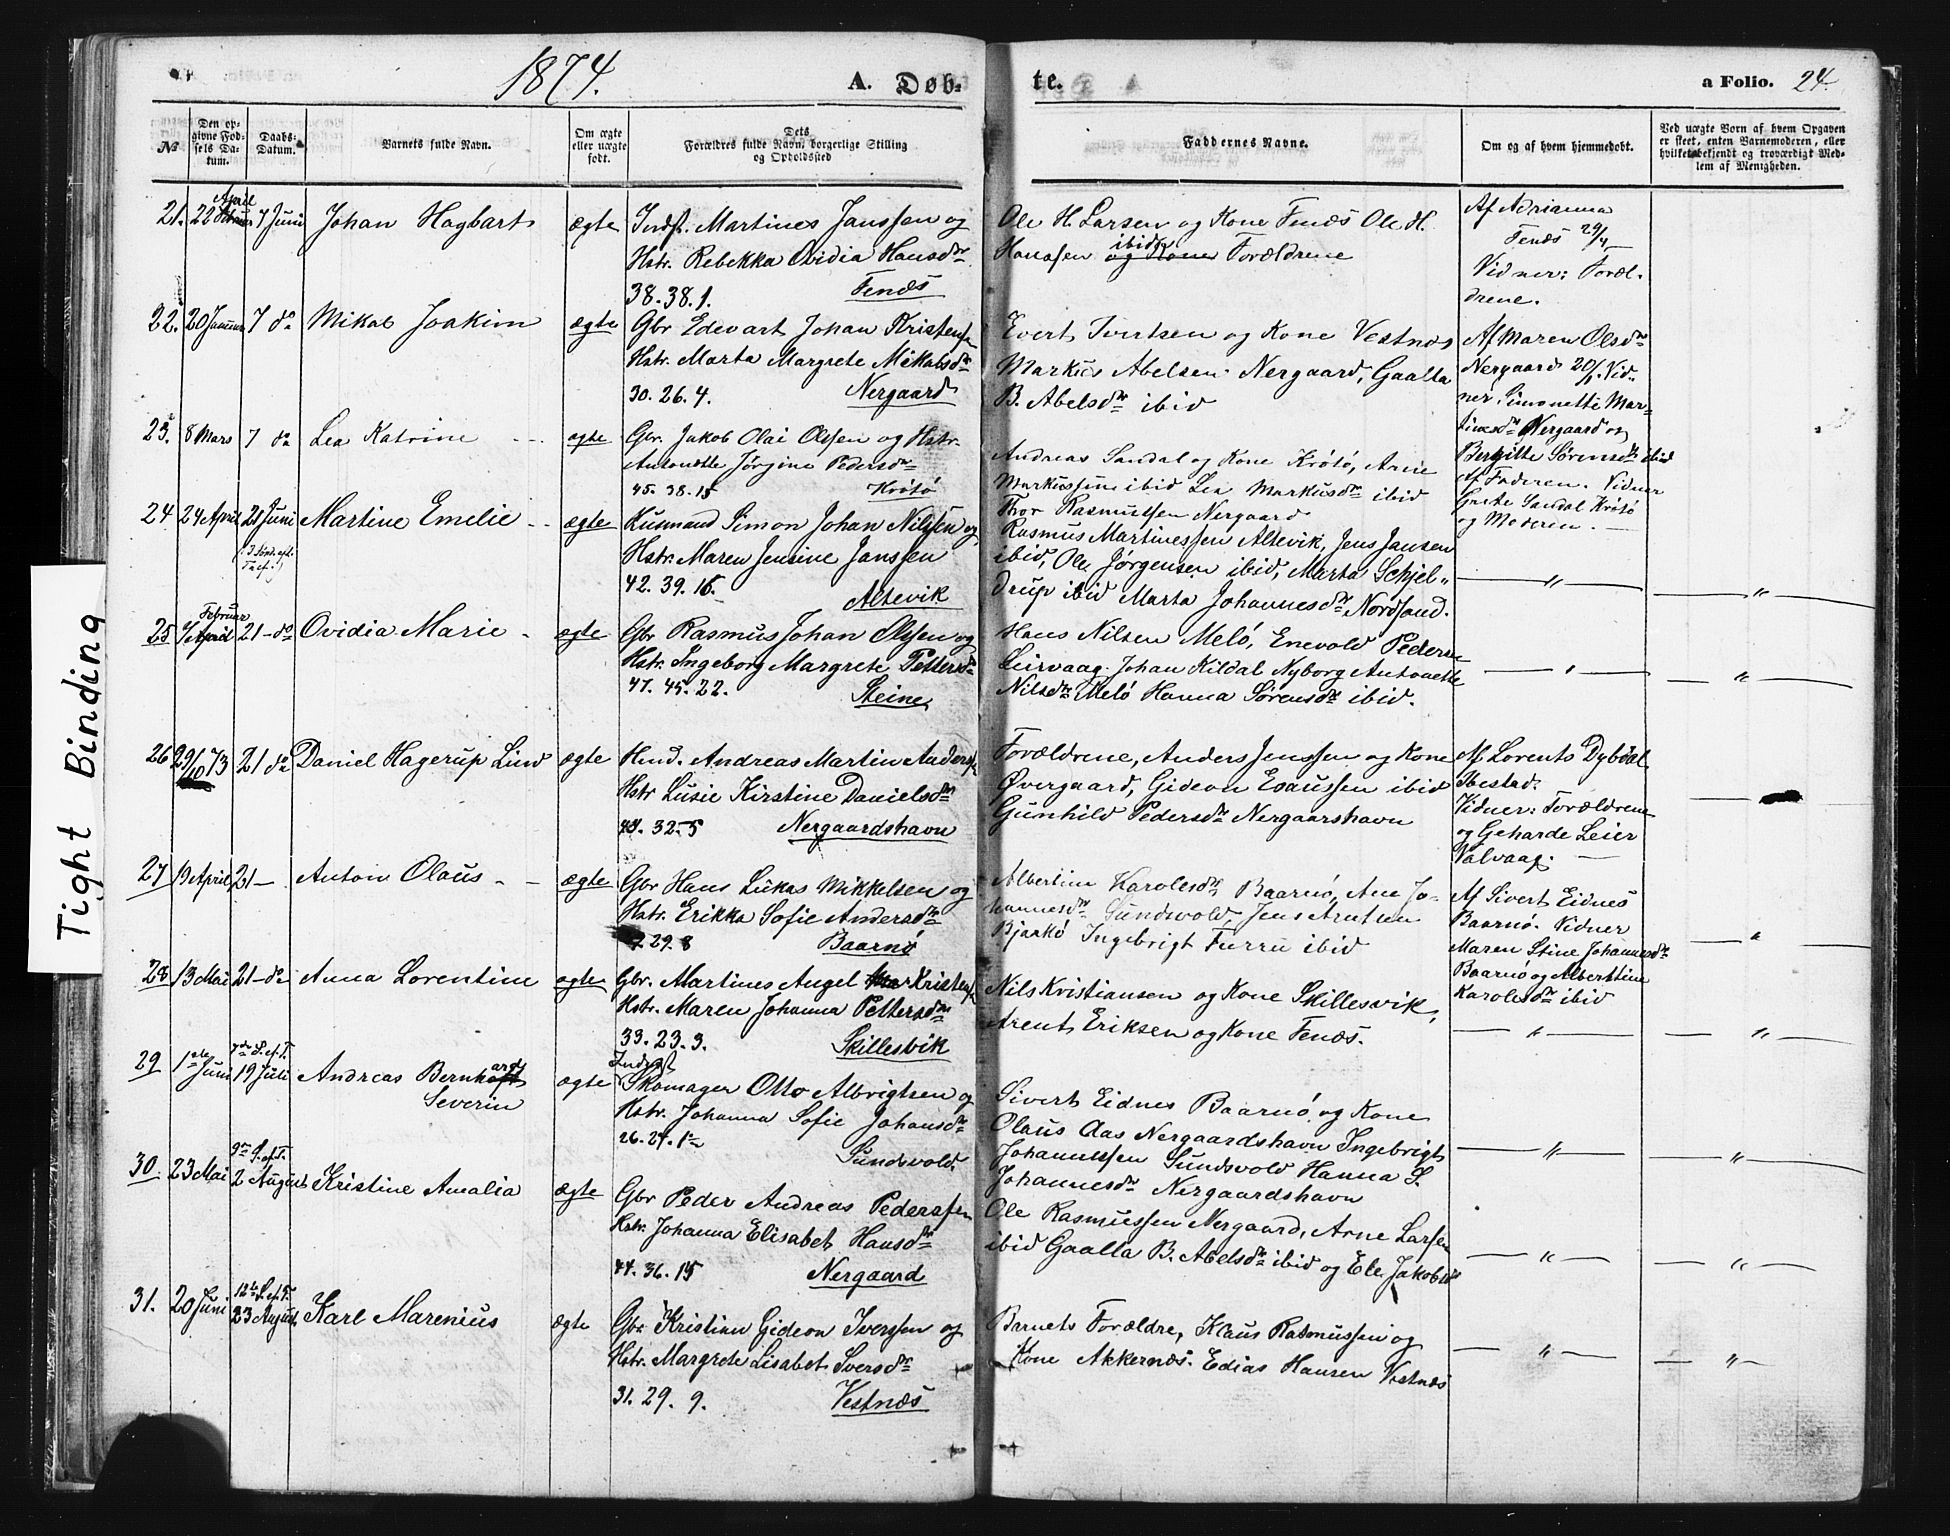 1874.
A. Døb-
te.
a Folio. 24.
Tight Binding
№
Den op-
givne Fød-
sels Da-
tum.
Daabs-
Datum.
Barnets fulde Navn.
Om ægte
eller uægte
født.
Dets
Forældres fulde Navn, borgerlige Stilling
og Opholdssted
Faddernes Navne.
Om og af hvem hjemmedøbt.
Ved uægte Børn af hvem Opgaven
er skeet, enten Barnemoderen, eller
hvilket bekjendt og troværdigt Med-
lem af Menigheden.
21. 22 April 7 Juni Johan Hagbart ægte
Indst. Martines Janssen og
Hstr. Rebekka Ovidia Hansdtr
38. 38. 1. Fenæs
Ole H. Larsen og Kone Fenæs Ole H.
Hanssen ibid og Kone Forældrene
Af Adrianna
Fenæs 29/4
Vidner: Foræl-
drene.
22. 20 Januar 7 do Mikal Joakim ægte
Gbr Edevart Johan Kristensen
Hstr. Marta Margrete Mikalsdtr
30. 26. 4. Nergaard
Evert Ivertsen og Kone Vestnæs
Markus Abelsen Nergaard, Gaalta
B. Abelsdtr ibid
Af Maren Olsdtr
Nergaard 20/1. Vid-
ner Simonette Mar-
tinesdtr Nergaard og
Bergitte Sørensdtr ibid
23. 8 Mars 7 do Lea Katrine - - ægte
Gbr. Jakob Olai Olssen og Hstr.
Antonette Jørgine Pedersdtr
45. 38. 15 Krøtø
Andreas Sandal og Kone Krøtø, Arne
Markussen ibid Lea Markusdtr ibid
Thor Rasmussen Nergaard
Af Faderen. Vidner
Grete Sandal Krøtø
og Moderen.
24 24 April 21 Juni Martine Emelie - - ægte
Husmand Simon Johan Nilssen og
Hstr. Maren Jensine Janssen
42. 39. 16. Altevik
Rasmus Martinessen Altevik, Jens Jansen
ibid, Ole Jørgensen ibid, Marta Schjel-
drup ibid Marta Johannesdtr Nordsand.
"
"
25 Februar 21 - do Ovidia Marie - ægte
Gbr Rasmus Johan Olssen og
Hstr. Ingeborg Margrete Pettersdtr
47. 45. 22. Steine
Hans Nilsen Melø, Enevold Pedersen
Leirvaag. Johan Kildal Nyborg Antonette
Nilsdtr Melø Hanna Sørensdtr ibid.
"
"
26 29/10 73 21 do Daniel Hagerup Lind ægte
Hmd. Andreas Martin Anderssen
Hstr Lusie Kirstine Danielsdtr
32-5 Nergaardshavn
Forældrene, Anders Jenssen og Kone
Øvergaard, Gideon Esaussen ibid
Gunhild Pedersdtr Nergaarshavn
Af Lorents Dybdal
Ibestad.
Vidner: Forældrene
og Geharde Leier
Valvaag.
27 April 21 - Anton Olaus - - ægte
Gbr Hans Lukas Mikkelsen og
Hstr. Erikka Sofie Andersdtr
29. 8 Baarnø
Albertine Karolesdtr Baarnø, Ane Jo-
hannesdtr Sundsvold, Jens Arntsen
Bjarkø Ingebrigt Furru ibid
Af Sivert Eidnes
Baarnø. Vidner
Maren Stine Johannesdtr
Baarnø og Alberttine
Karolesdtr ibid
"
28 13 Mai 21 - do Anna Lorentine ægte
Gbr. Martines Angel Kristensen
Hstr. Maren Johanna Pettersdtr
33. 23. 3. Skillesvik
Nils Kristiansen og Kone Skillesvik,
Arent Eriksen og Kone Fenæs.
"
"
29 1ste Juni 7de S. e. T. 19 Juli Andreas Bernhard
Severin ægte
Inderst
Skomager Otto Albrigtsen og
Hstr. Johanna Sofie Johansdtr
Sundsvold.
Sivert Eidnes Baarnø og Kone
Olaus Aas Nergaardshavn Ingebrigt
Johannessen Sundsvold Hanna S.
Johannesdtr Nergaardshavn
"
"
30. 23 Mai 9de S. e. T. 2 August Kristine Amalia ægte
Gbr Peder Andreas Pederssen
Hstr. Johanna Elisabet Hansdtr
44. 36. 15 Nergaard
Ole Rasmussen Nergaard, Arne Larsen
ibid Gaalta B. Abelsdtr ibid og Ele Jakobsdtr
"
"
31. 20 Juni 12te S. e. T. 23 August Karl Marenius ægte
Gbr Kristian Gideon Iverssen og
Hstr. Margrete Lisabet Siversdtr
31. 29. 9. Vestnæs
Barnets Forældre, Klaus Rasmussen og
Kone Akkernæs. Edias Hansen Vestnæs
"
"